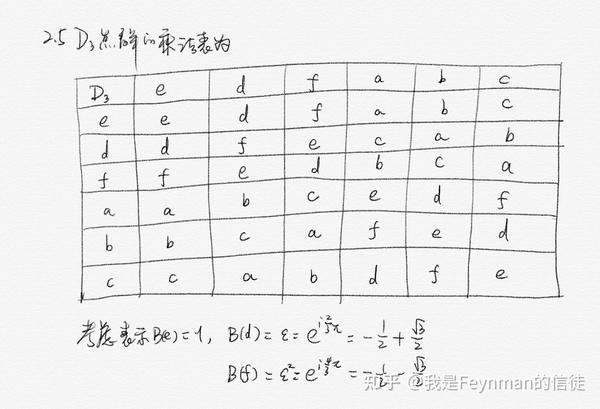 2.5 D₃点群的乘法表为
D₃ e d f a b c
e e d f a b c
d d f e c a b
f f e d b c a
a a b c e d f
b b c a f e d
c c a b d f e
考虑表示B(e)=1, B(d)=ε=e^{i\frac{2}{3}π}=-\frac{1}{2}+\frac{√3}{2}
B(f)=ε²=e^{i\frac{4}{3}π}=-\frac{1}{2}-\frac{√3}{2}
知乎 @我是Feynman的信徒